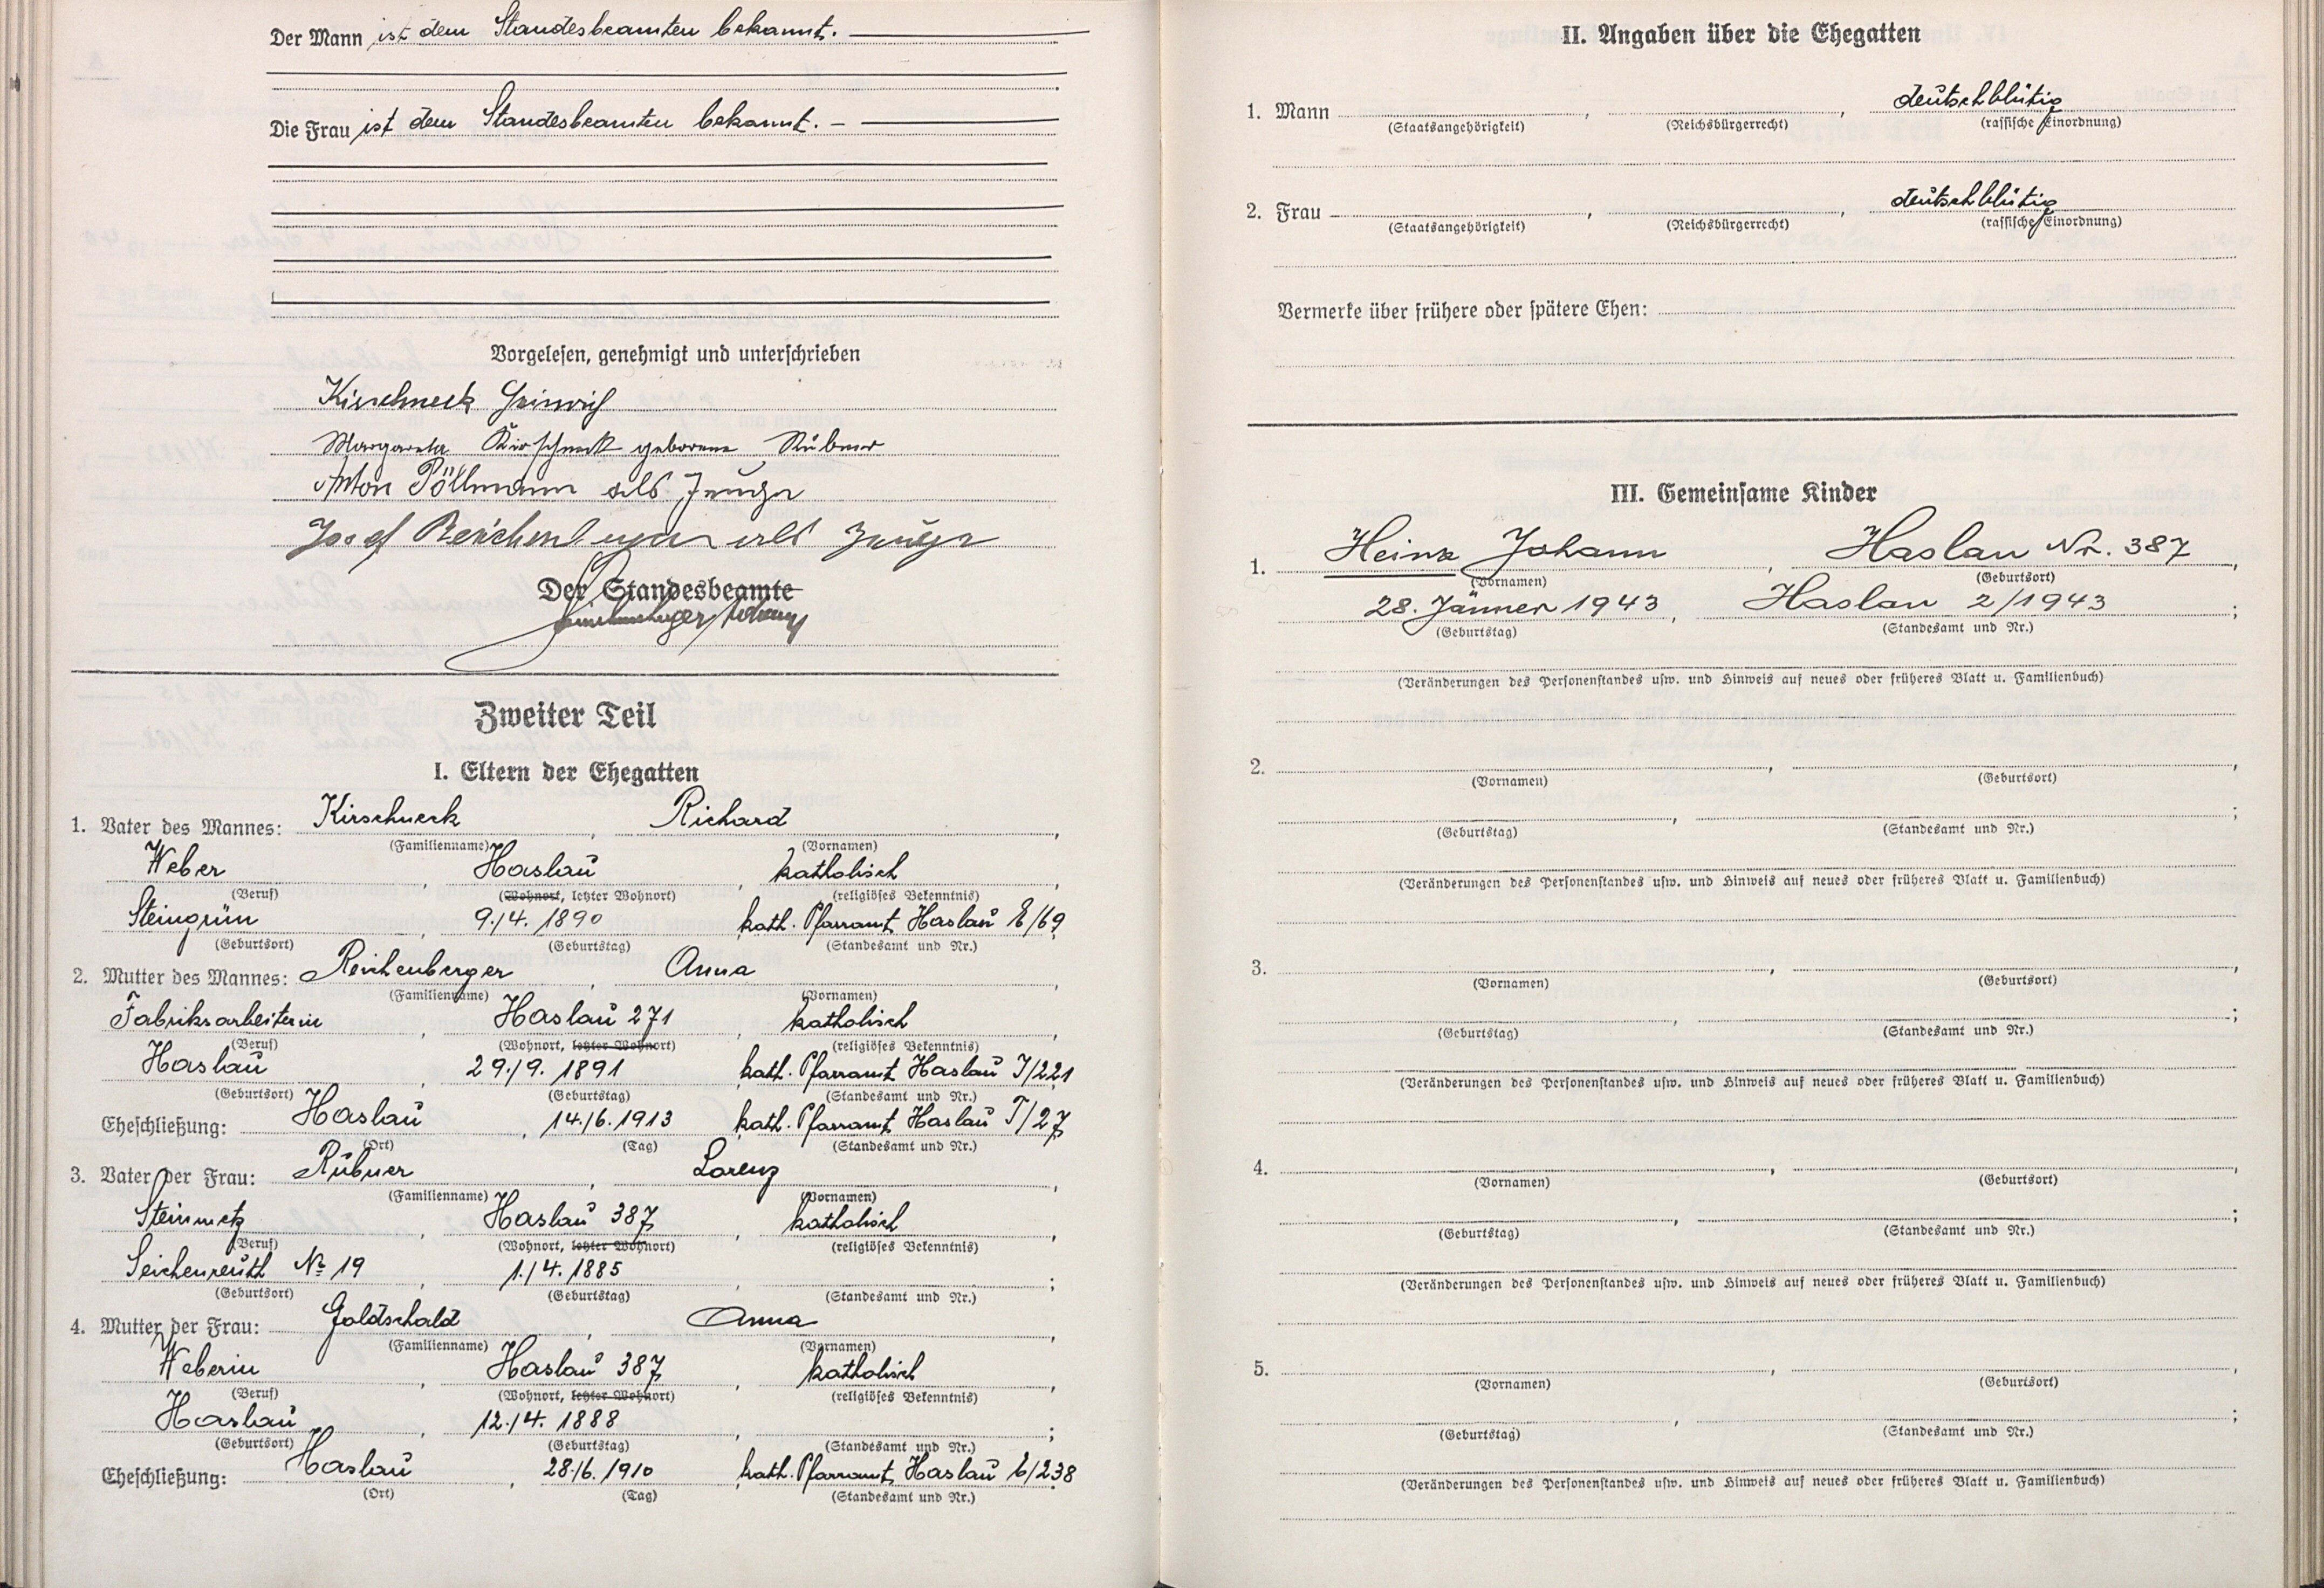 Der Mann ist dem Standesbeamten bekannt. —
Die Frau ist dem Standesbeamten bekannt. — —
Vorgelesen, genehmigt und unterschrieben
Kirschneck Heinrich
Margareta Kirschneck geborene Rübner
Anton Pöllmann als Zeuge
Josef Reichenberger als Zeuge
Der Standesbeamte
Zweiter Teil
I. Eltern der Ehegatten
1. Vater des Mannes: Kirschneck, Richard,
(Familienname) (Vornamen)
Weber, Haslau, katholisch,
(Beruf) (Wohnort, letzter Wohnort) (religiöses Bekenntnis)
Steingrün, 9./4. 1890, kath. Pfarramt Haslau E/69
(Geburtsort) (Geburtstag) (Standesamt und Nr.)
2. Mutter des Mannes: Reichenberger, Anna,
(Familienname) (Vornamen)
Fabriksarbeiterin, Haslau 271, katholisch,
(Beruf) (Wohnort, letzter Wohnort) (religiöses Bekenntnis)
Haslau, 29./9. 1891, kath. Pfarramt Haslau I/221
(Geburtsort) (Geburtstag) (Standesamt und Nr.)
Eheschließung: Haslau, 14./6. 1913, kath. Pfarramt Haslau I/27
(Ort) (Tag) (Standesamt und Nr.)
3. Vater der Frau: Rübner, Lorenz,
(Familienname) (Vornamen)
Steinmetz, Haslau 387, katholisch,
(Beruf) (Wohnort, letzter Wohnort) (religiöses Bekenntnis)
Seichenreuth № 19, 1./4. 1885, ;
(Geburtsort) (Geburtstag) (Standesamt und Nr.)
4. Mutter der Frau: Goldschald, Anna,
(Familienname) (Vornamen)
Weberin, Haslau 387, katholisch,
(Beruf) (Wohnort, letzter Wohnort) (religiöses Bekenntnis)
Haslau, 12./4. 1888, ;
(Geburtsort) (Geburtstag) (Standesamt und Nr.)
Eheschließung: Haslau, 28./6. 1910, kath. Pfarramt Haslau E/238
(Ort) (Tag) (Standesamt und Nr.)
II. Angaben über die Ehegatten
1. Mann , , deutschblütig
(Staatsangehörigkeit) (Reichsbürgerrecht) (rassische Einordnung)
2. Frau , , deutschblütig
(Staatsangehörigkeit) (Reichsbürgerrecht) (rassische Einordnung)
Vermerke über frühere oder spätere Ehen:
III. Gemeinsame Kinder
1. Heinz Johann, Haslau Nr. 387,
(Vornamen) (Geburtsort)
28. Jänner 1943, Haslau 2/1943;
(Geburtstag) (Standesamt und Nr.)
(Veränderungen des Personenstandes usw. und Hinweis auf neues oder früheres Blatt u. Familienbuch)
2. , ,
(Vornamen) (Geburtsort)
, ;
(Geburtstag) (Standesamt und Nr.)
(Veränderungen des Personenstandes usw. und Hinweis auf neues oder früheres Blatt u. Familienbuch)
3. , ,
(Vornamen) (Geburtsort)
, ;
(Geburtstag) (Standesamt und Nr.)
(Veränderungen des Personenstandes usw. und Hinweis auf neues oder früheres Blatt u. Familienbuch)
4. , ,
(Vornamen) (Geburtsort)
, ;
(Geburtstag) (Standesamt und Nr.)
(Veränderungen des Personenstandes usw. und Hinweis auf neues oder früheres Blatt u. Familienbuch)
5. , ,
(Vornamen) (Geburtsort)
, ;
(Geburtstag) (Standesamt und Nr.)
(Veränderungen des Personenstandes usw. und Hinweis auf neues oder früheres Blatt u. Familienbuch)